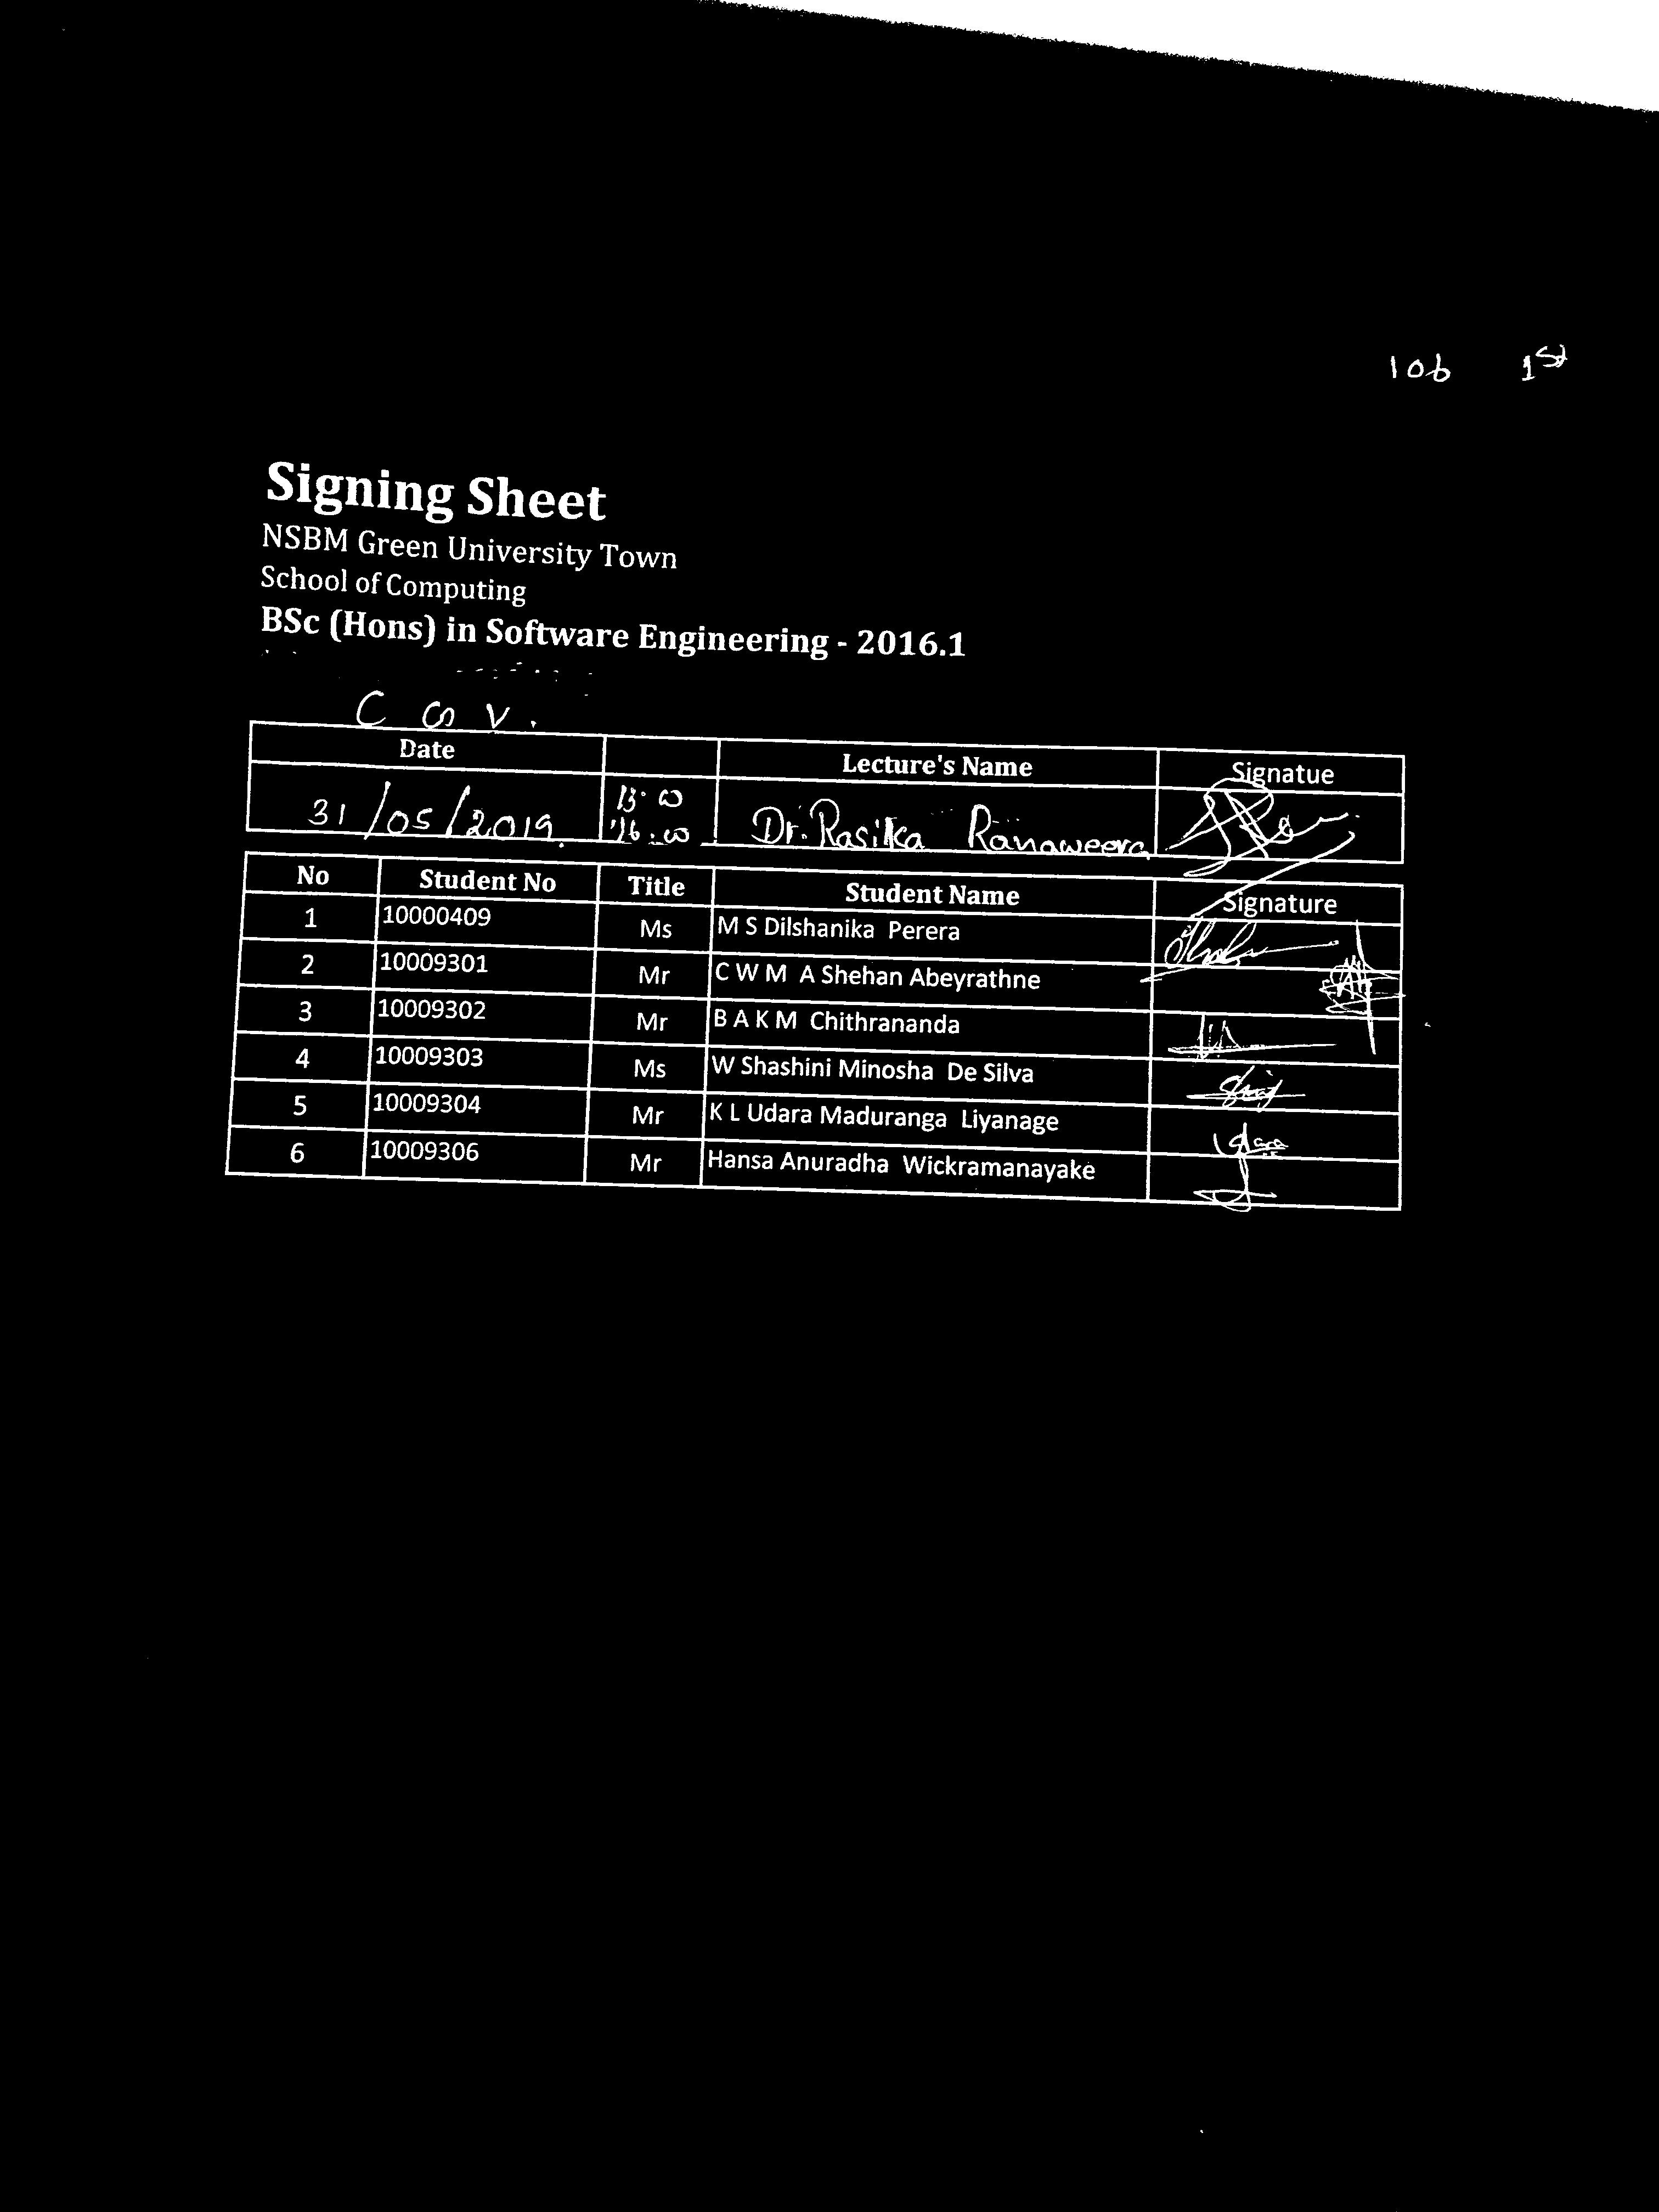 106 1st
Signing Sheet
NSBM Green University Town
School of Computing
BSc (Hons) in Software Engineering - 2016.1
C G V.
Date Lecture's Name Signatue
31/05/2019 Dr. Rasika Ranaweera
No Student No Title Student Name Signature
1 10000409 Ms M S Dilshanika Perera
2 10009301 Mr C W M A Shehan Abeyrathne
3 10009302 Mr B A K M Chithrananda
4 10009303 Ms W Shashini Minosha De Silva
5 10009304 Mr K L Udara Maduranga Liyanage
6 10009306 Mr Hansa Anuradha Wickramanayake